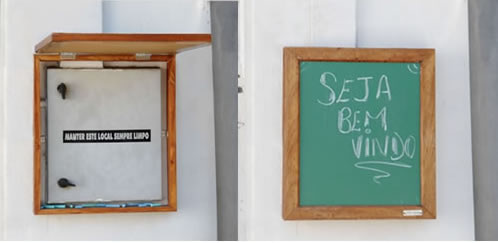 MANTER ESTE LOCAL SEMPRE LIMPO
SEJA
BEM
VINDO